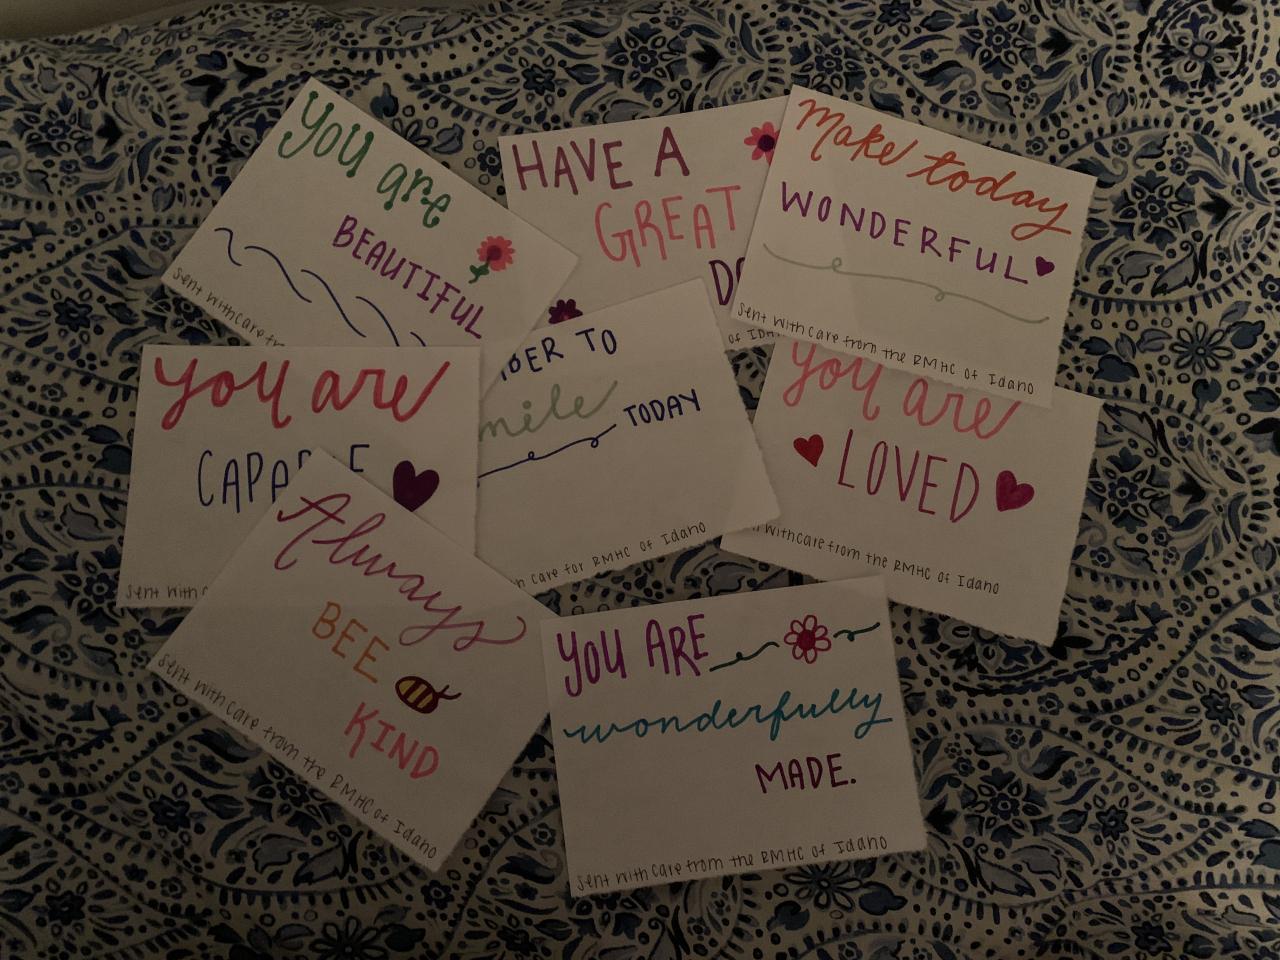 You are
BEAUTIFUL
sent with care fr
HAVE A
GREAT
of
Make today
WONDERFUL
sent with care from the RMHC of Idaho
you are
CAPA
E
sent with c
BER TO
mile
TODAY
care for RMHC of Idaho
you are
LOVED
with care from the RMHC of Idaho
Always
BEE
KIND
sent with care from the RMHC of Idaho
YOU ARE
wonderfully
MADE.
sent with care from the RMHC of Idaho